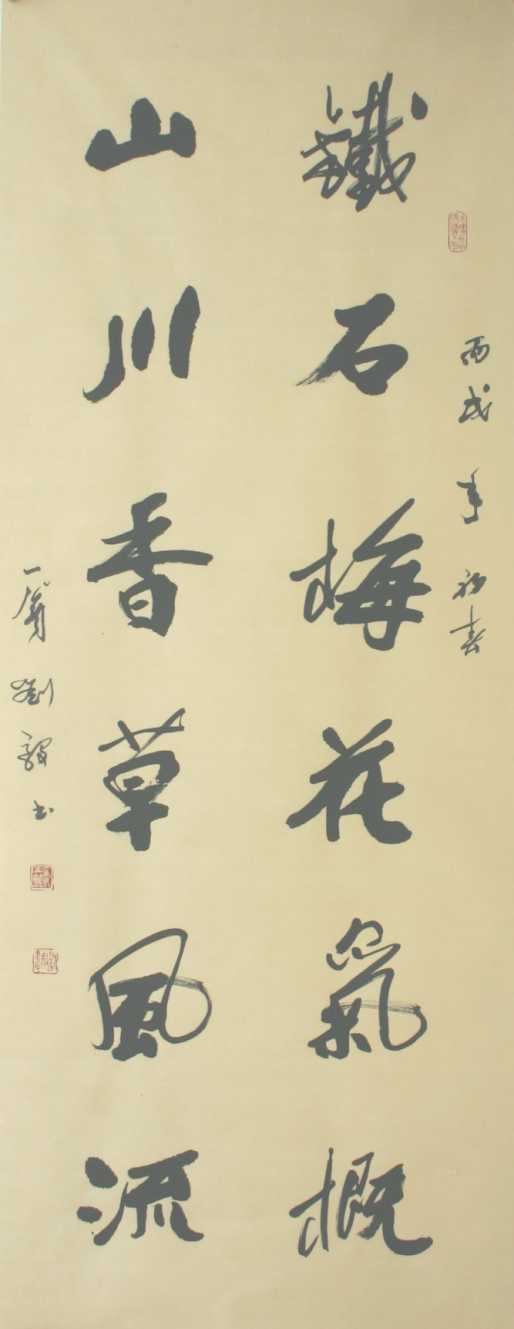 丙戌年初春
鐵石梅花氣概
山川香草風流
劉毅書